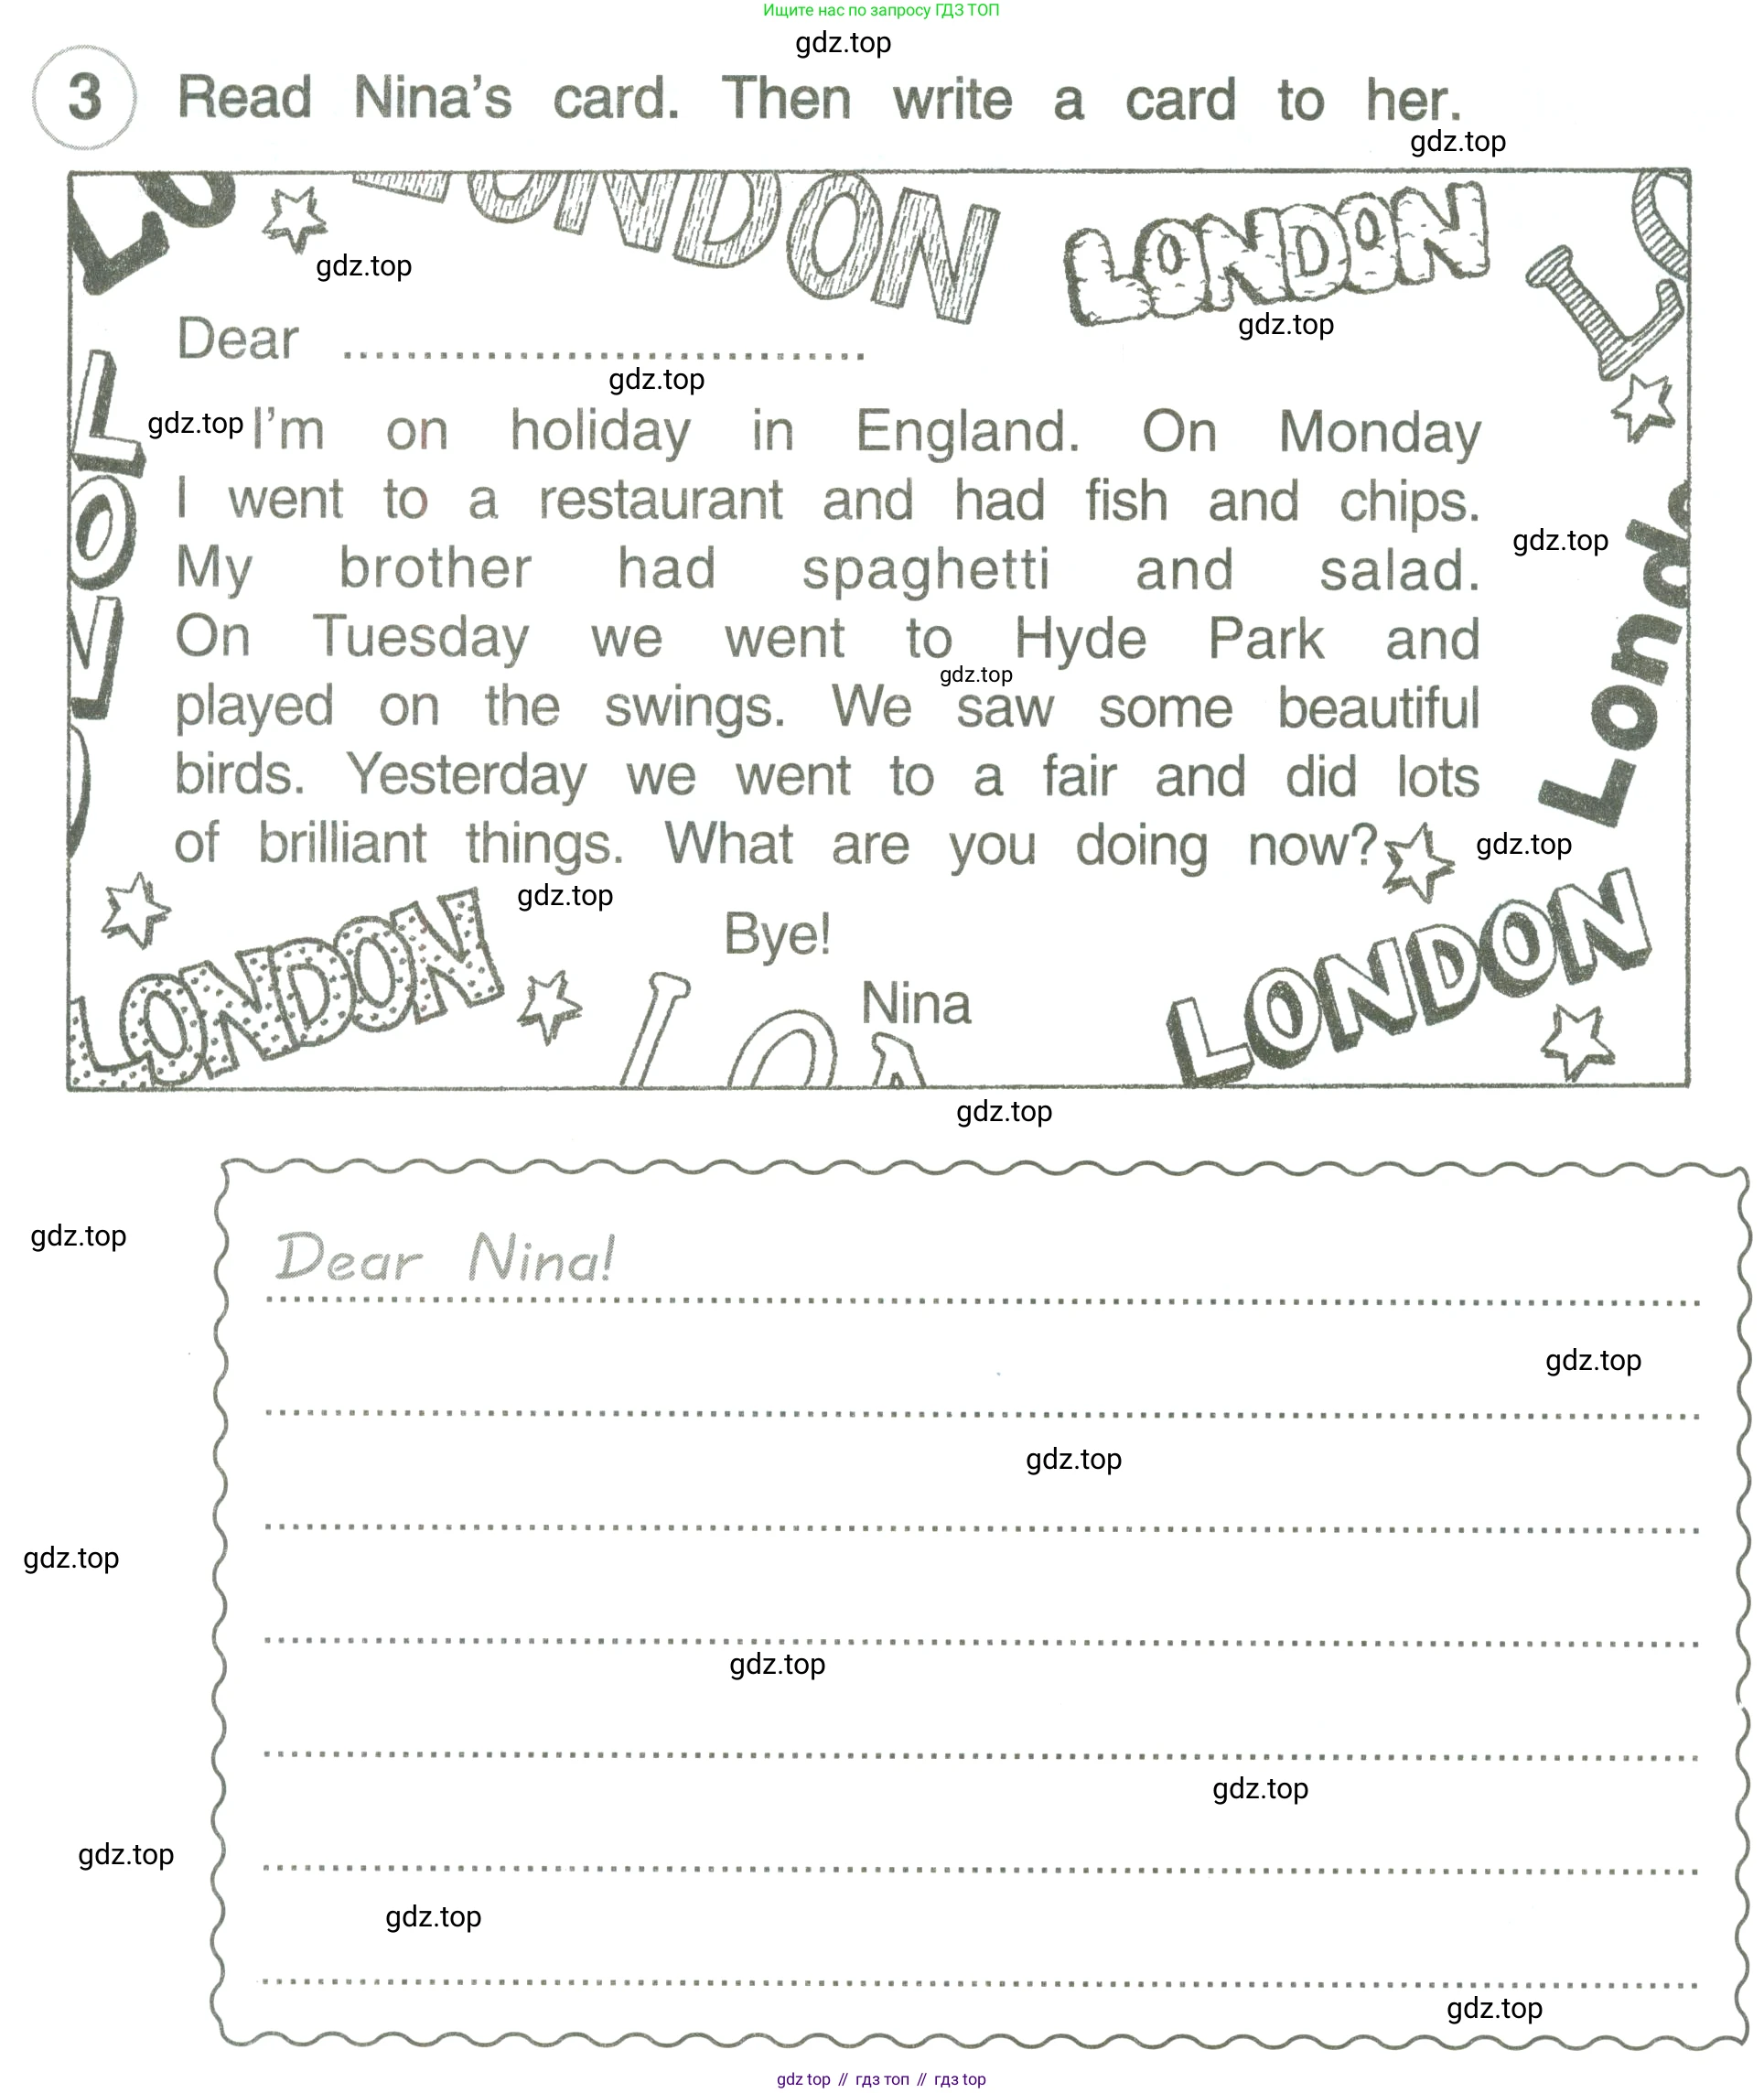 Ищите нас по запросу ГДЗ ТОП
gdz.top
3 Read Nina's card. Then write a card to her.
gdz.top
LO LONDON LONDON LO
gdz.top
gdz.top
Dear ................................
gdz.top
gdz.top I'm on holiday in England. On Monday
I went to a restaurant and had fish and chips.
gdz.top
My brother had spaghetti and salad.
On Tuesday we went to Hyde Park and
gdz.top
played on the swings. We saw some beautiful
birds. Yesterday we went to a fair and did lots
of brilliant things. What are you doing now?
gdz.top
LON
Lond
gdz.top
Bye!
Nina
LONDON
LON
LONDON
gdz.top
gdz.top
Dear Nina!
gdz.top
gdz.top
gdz.top
gdz.top
gdz.top
gdz.top
gdz.top
gdz.top
gdz top // гдз топ // гдз top